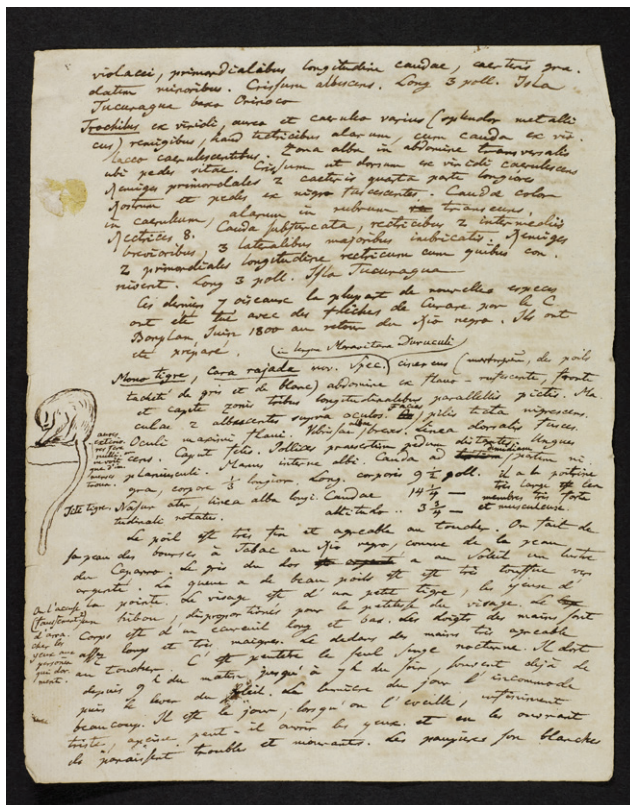 violacei, primordialibus longitudine caudae, caeteris gra-
datim minoribus. Crissum albescens. Long 3 poll. Isla
Tucuragua baxo Orinoco
Trochilus ex viridi, aureo et caeruleo varius (splendor metalli
cus) remigibus, haud tectricibus alarum, cum cauda ex vio-
laceo caerulescentibus. Zona alba in abdomine transversalis
ubi pedes sitae. Crissum ut dorsum ex viridi caerulescens
Remiges primordiales 2 caeteris quarta parte longiores
Rostrum et pedes ex nigro fuscescentes. Caudae color
in caeruleum, alarum in rubrum transeuns.
Rectrices 8. Cauda subfurcata, rectricibus 2 intermediis
brevioribus, 3 lateralibus majoribus imbricatis. Remiges
2 primordiales longitudine rectricum cum quibus con-
niveni. Long 3 poll. Isla Tucuragua
Ces derniers 7 oiseaux la plupart de nouvelles especes
ont eté tué avec des flèches de Curare par le C
Bonplan, Juin 1800 au retour du Rio negro. Ils ont
eté preparé.
(in lingua Maravitana Duruculi
Mono tigre, Cara rajada nov. Spec.) cinereus ( des poils
tacheté de gris et de blanc) abdomine ex flavo-rufescente, fronte
et capite zonis tribus longitudinalibus parallelis pictis. Ma
culae 2 albescentes supra oculos. facies pilis tecta nigrescens.
Oculi maximi flavi. Vibrissae albae breves. Linea dorsalis fusca
cens. Caput feles. Pollices praesertim pedum distantes. Ungues
planiusculi. Manus interne albi. Cauda ad dimidiam partem ni-
gra, corpore ½ longiora. Long. corporis 9½ poll. il a la poitrine
Tete tigre. Nasus ater, linea alba longi- Caudae 14¼ — très large les
tudinale notatus. altitudo .. 3¾ — membres très forts
et musculeuse.
Le poil est très fin et agreable au toucher. On fait de
sa peau des bourses à Tabac au Rio negro, comme de la peau
du Caparro. Le gris du dos a au Soleil un lustre
argenté. La queue a de beau poils et est très touffue vers
la pointe. Le visage est d'un petit tigre, les yeux d'
un hibou, disproportionés pour la petitesse du visage. Le
Corps est d'un ecureuil long et bas. Les doigts des mains sont
assez longs et très maigres. Le dedans des mains très agreable
au toucher. C'est peutetre le seul Singe nocturne. Il dort
depuis 9 h du matin jusqu'à 7 h du soir, souvent dejà de-
puis le lever du Soleil. La lumière du jour l'incommode
beaucoup. Il est le jour, lorsqu'on l'eveille, infiniment
triste, apeine peut-il ouvrir les yeux et en les ouvrant
ils paraissent trouble et mourants. Les paupières son blanches
on l'acuse
(faussement)
d'arra-
cher les
yeux aux
personnes
qui dor-
ment.